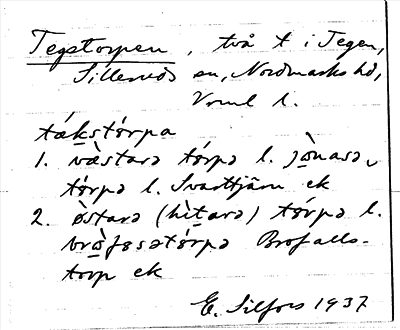 Tegstorpen, två t i Tegen,
Silleruds sn, Nordmarks hd,
Vrml l.
tákstórpa
1. væ̀starə tórpə l. jònasə
tórpə l. Svarttjärn ek
2. østarə (hìtarə) tórpə l.
brofəsətórpə Brofalls-
torp ek
E. Silfors 1937